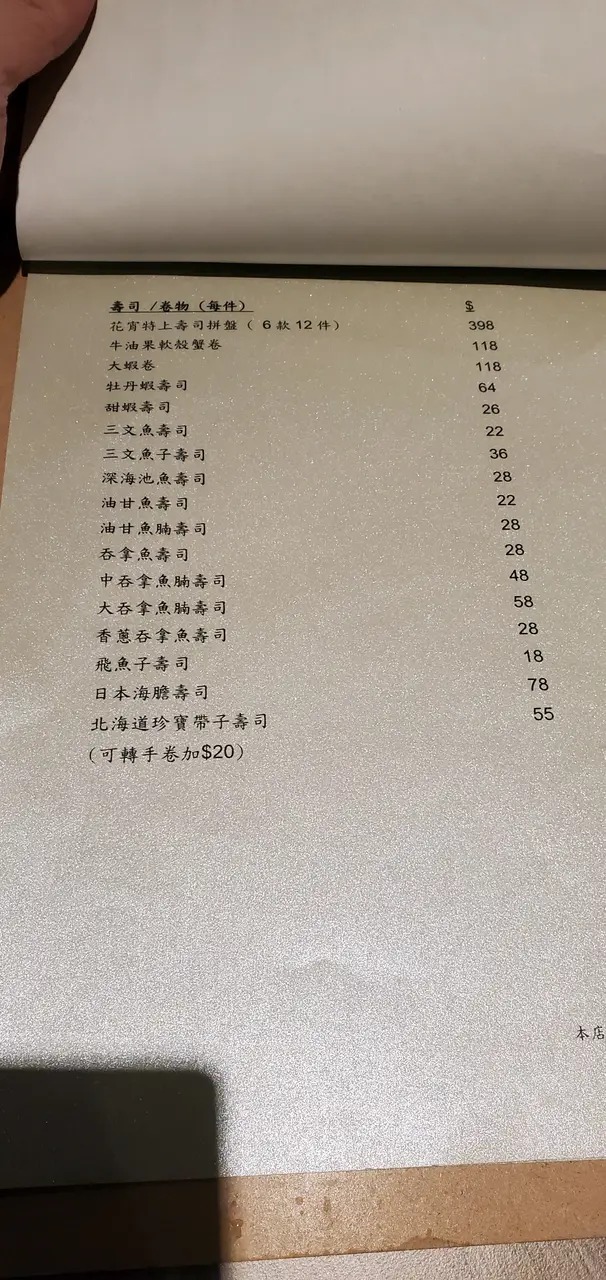 壽司 /卷物（每件） $
花宵特上壽司拼盤（ 6 款 12 件） 398
牛油果軟殼蟹卷 118
大蝦卷 118
牡丹蝦壽司 64
甜蝦壽司 26
三文魚壽司 22
三文魚子壽司 36
深海池魚壽司 28
油甘魚壽司 22
油甘魚腩壽司 28
吞拿魚壽司 28
中吞拿魚腩壽司 48
大吞拿魚腩壽司 58
香蔥吞拿魚壽司 28
飛魚子壽司 18
日本海膽壽司 78
北海道珍寶帶子壽司 55
（可轉手卷加$20）
本店